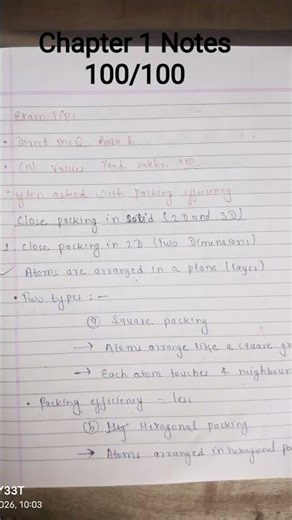 Chapter 1 Notes
100/100
Exam Tip:
• Direct MCQ Aata h.
• CN values Yaad rakho
• often asked with packing efficiency
Close packing in solid (2D and 3D)
1 Close packing in 2D (Two Dimensions)
Atoms are arranged in a plane (layer)
• Two types :-
(a) Square packing
→ Atoms arrange like a square
→ Each atom touches 4 neighbour
• Packing efficiency = less
(b) Hexagonal packing
→ Atoms arranged in hexagonal
Y33T
026, 10:03